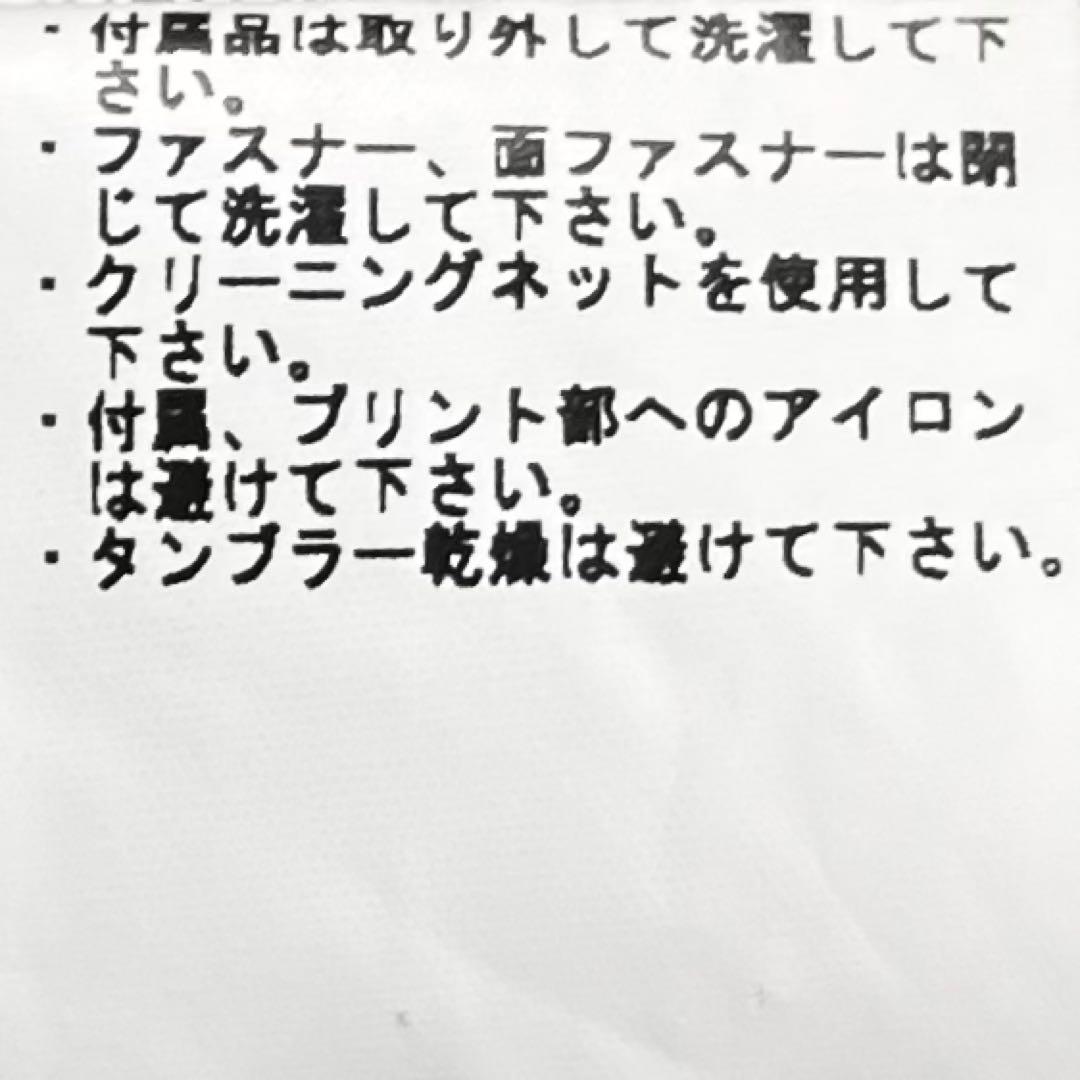 ・付属品は取り外して洗濯して下
さい。
・ファスナー、面ファスナーは閉
じて洗濯して下さい。
・クリーニングネットを使用して
下さい。
・付属、プリント部へのアイロン
は避けて下さい。
・タンブラー乾燥は避けて下さい。